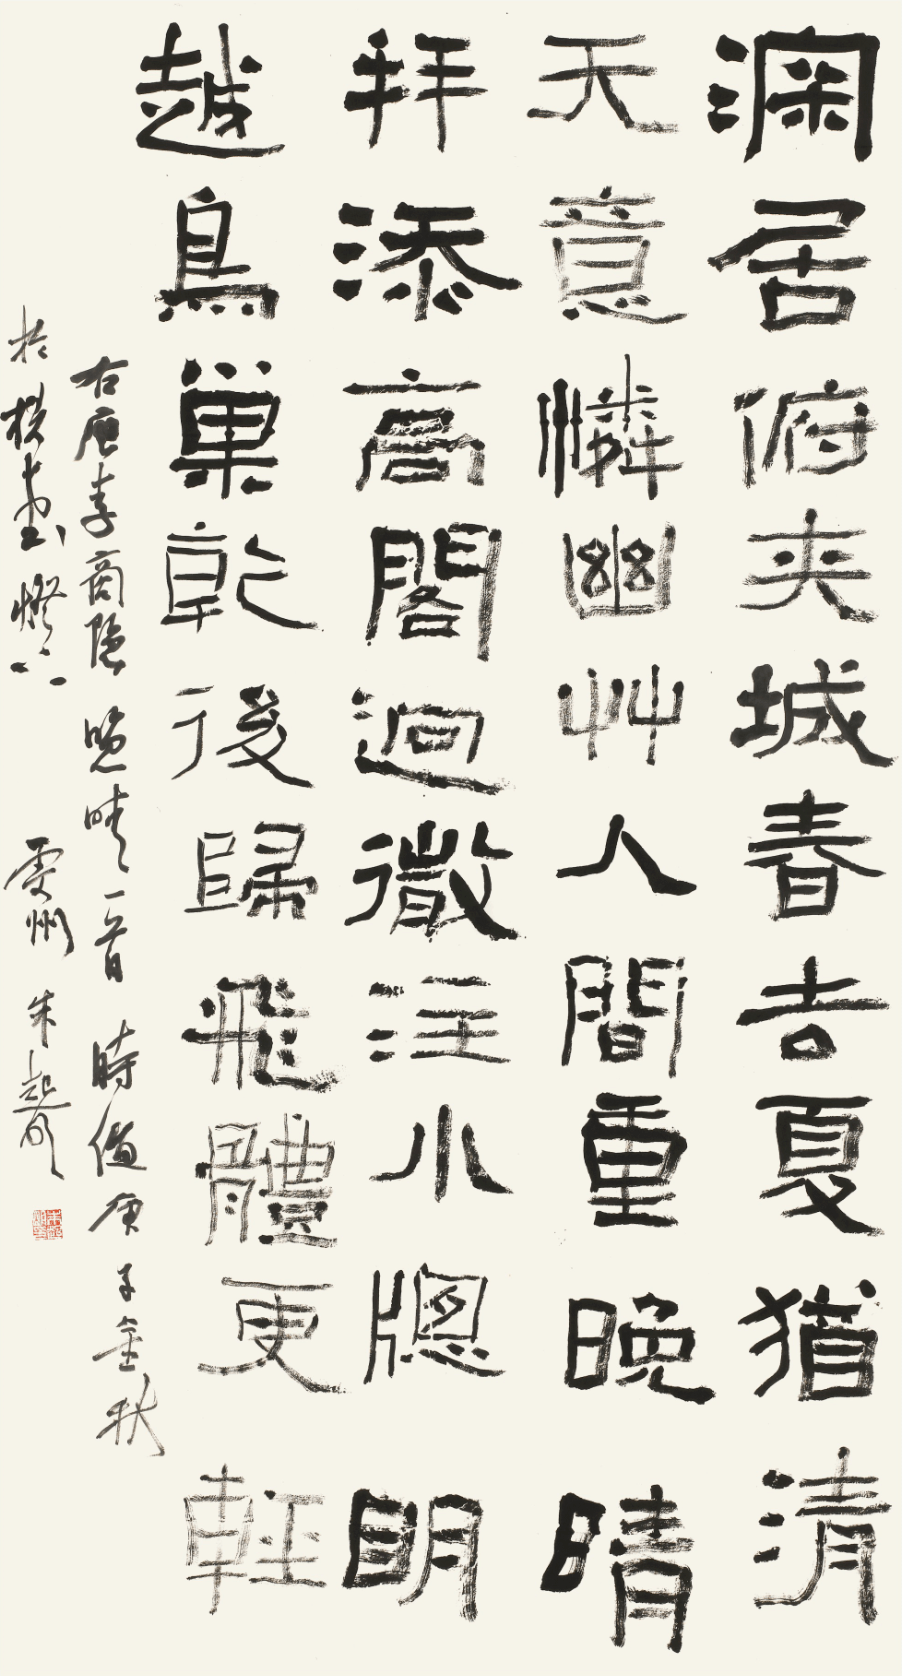 深居俯夾城春去夏猶清
天意憐幽艸人間重晚晴
幷添高閣逈微注小牕眀
越鳥巢乾後歸飛體更輕
右唐李商隐晚晴一首 時值庚子金秋
於 燈下 州 朱